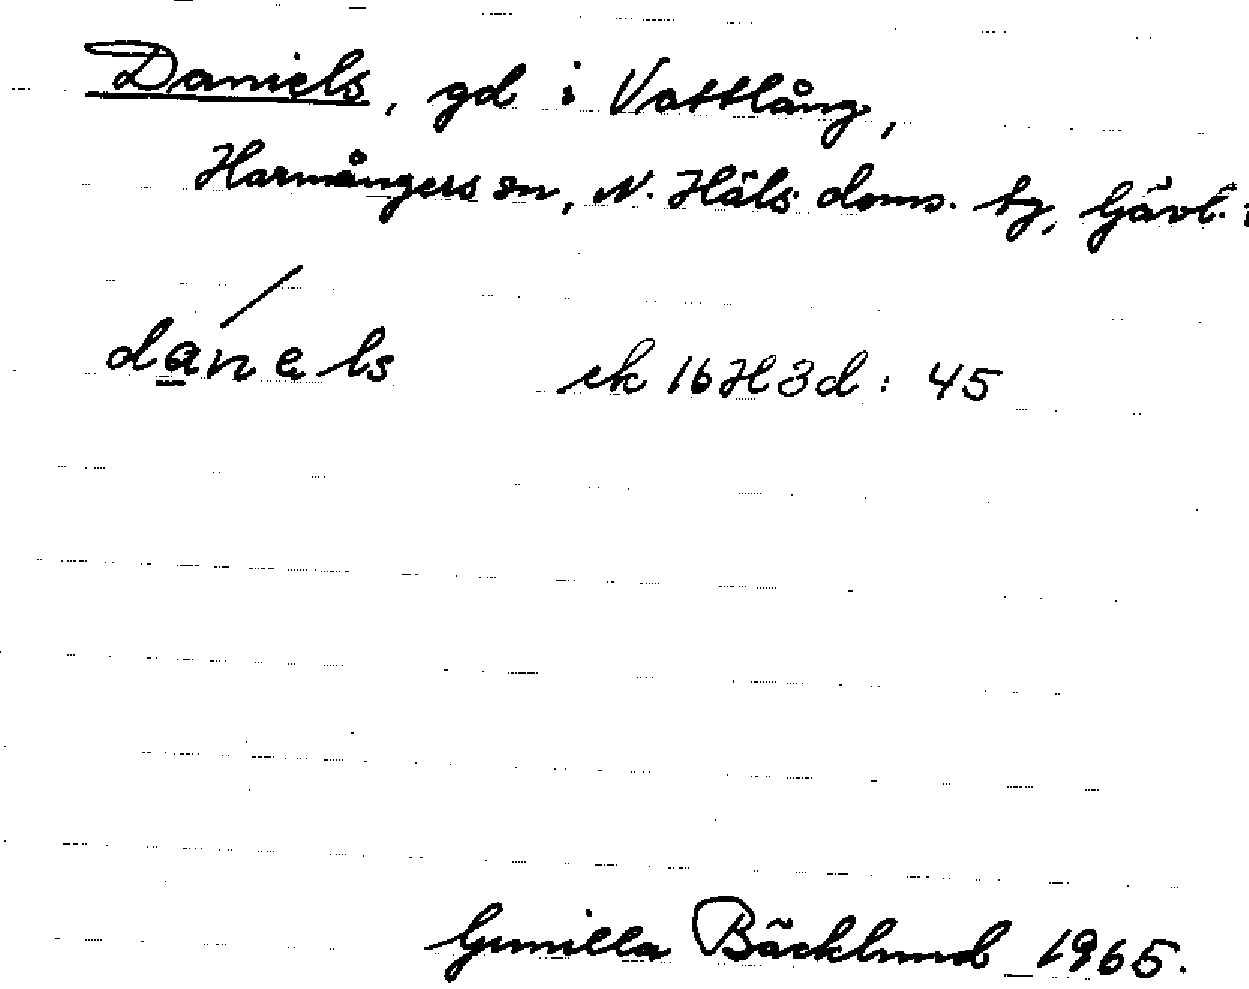 Daniels, gd i Vattlång,
Harmångers sn, N. Häls. doms. tg, Gävl.
dánels ek 16H3d: 45
Gunilla Bäcklund 1965.